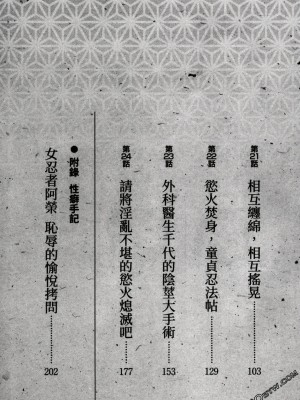 第21話 相互纏綿，相互搖晃………… 103
第22話 慾火焚身，童貞忍法帖………… 129
第23話 外科醫生千代的陰莖大手術………… 153
第24話 請將淫亂不堪的慾火熄滅吧………… 177
●附錄 性癖手記
女忍者阿榮 恥辱的愉悅拷問………… 202